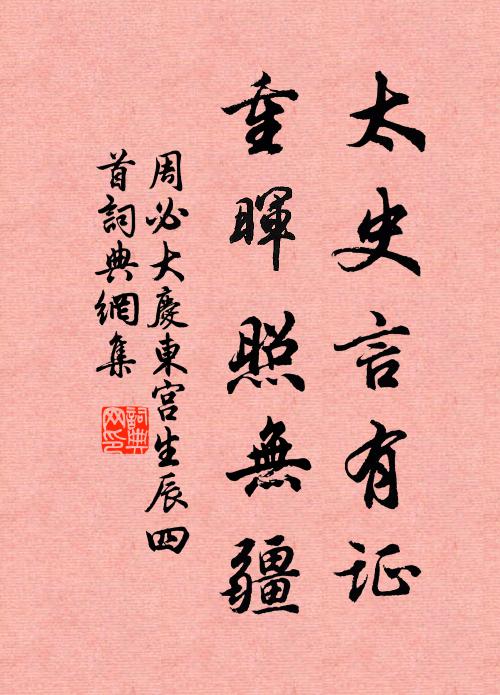 太史言有证
重暉照無疆
周必大慶東宮生辰四
首詞典網集
詞典
网印